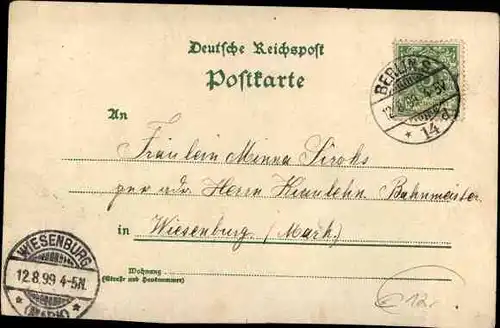 Deutsche Reichspost
Postkarte
BERLIN S.
12.8.99. 4-5N.
* 14 d
An
Fräulein Minna
per adr. Herrn Bahnmeister
in Wiesenburg. (Mark).
WIESENBURG
12.8.99 4-5N.
* (MARK) *
Wohnung
(Straße und Hausnummer)